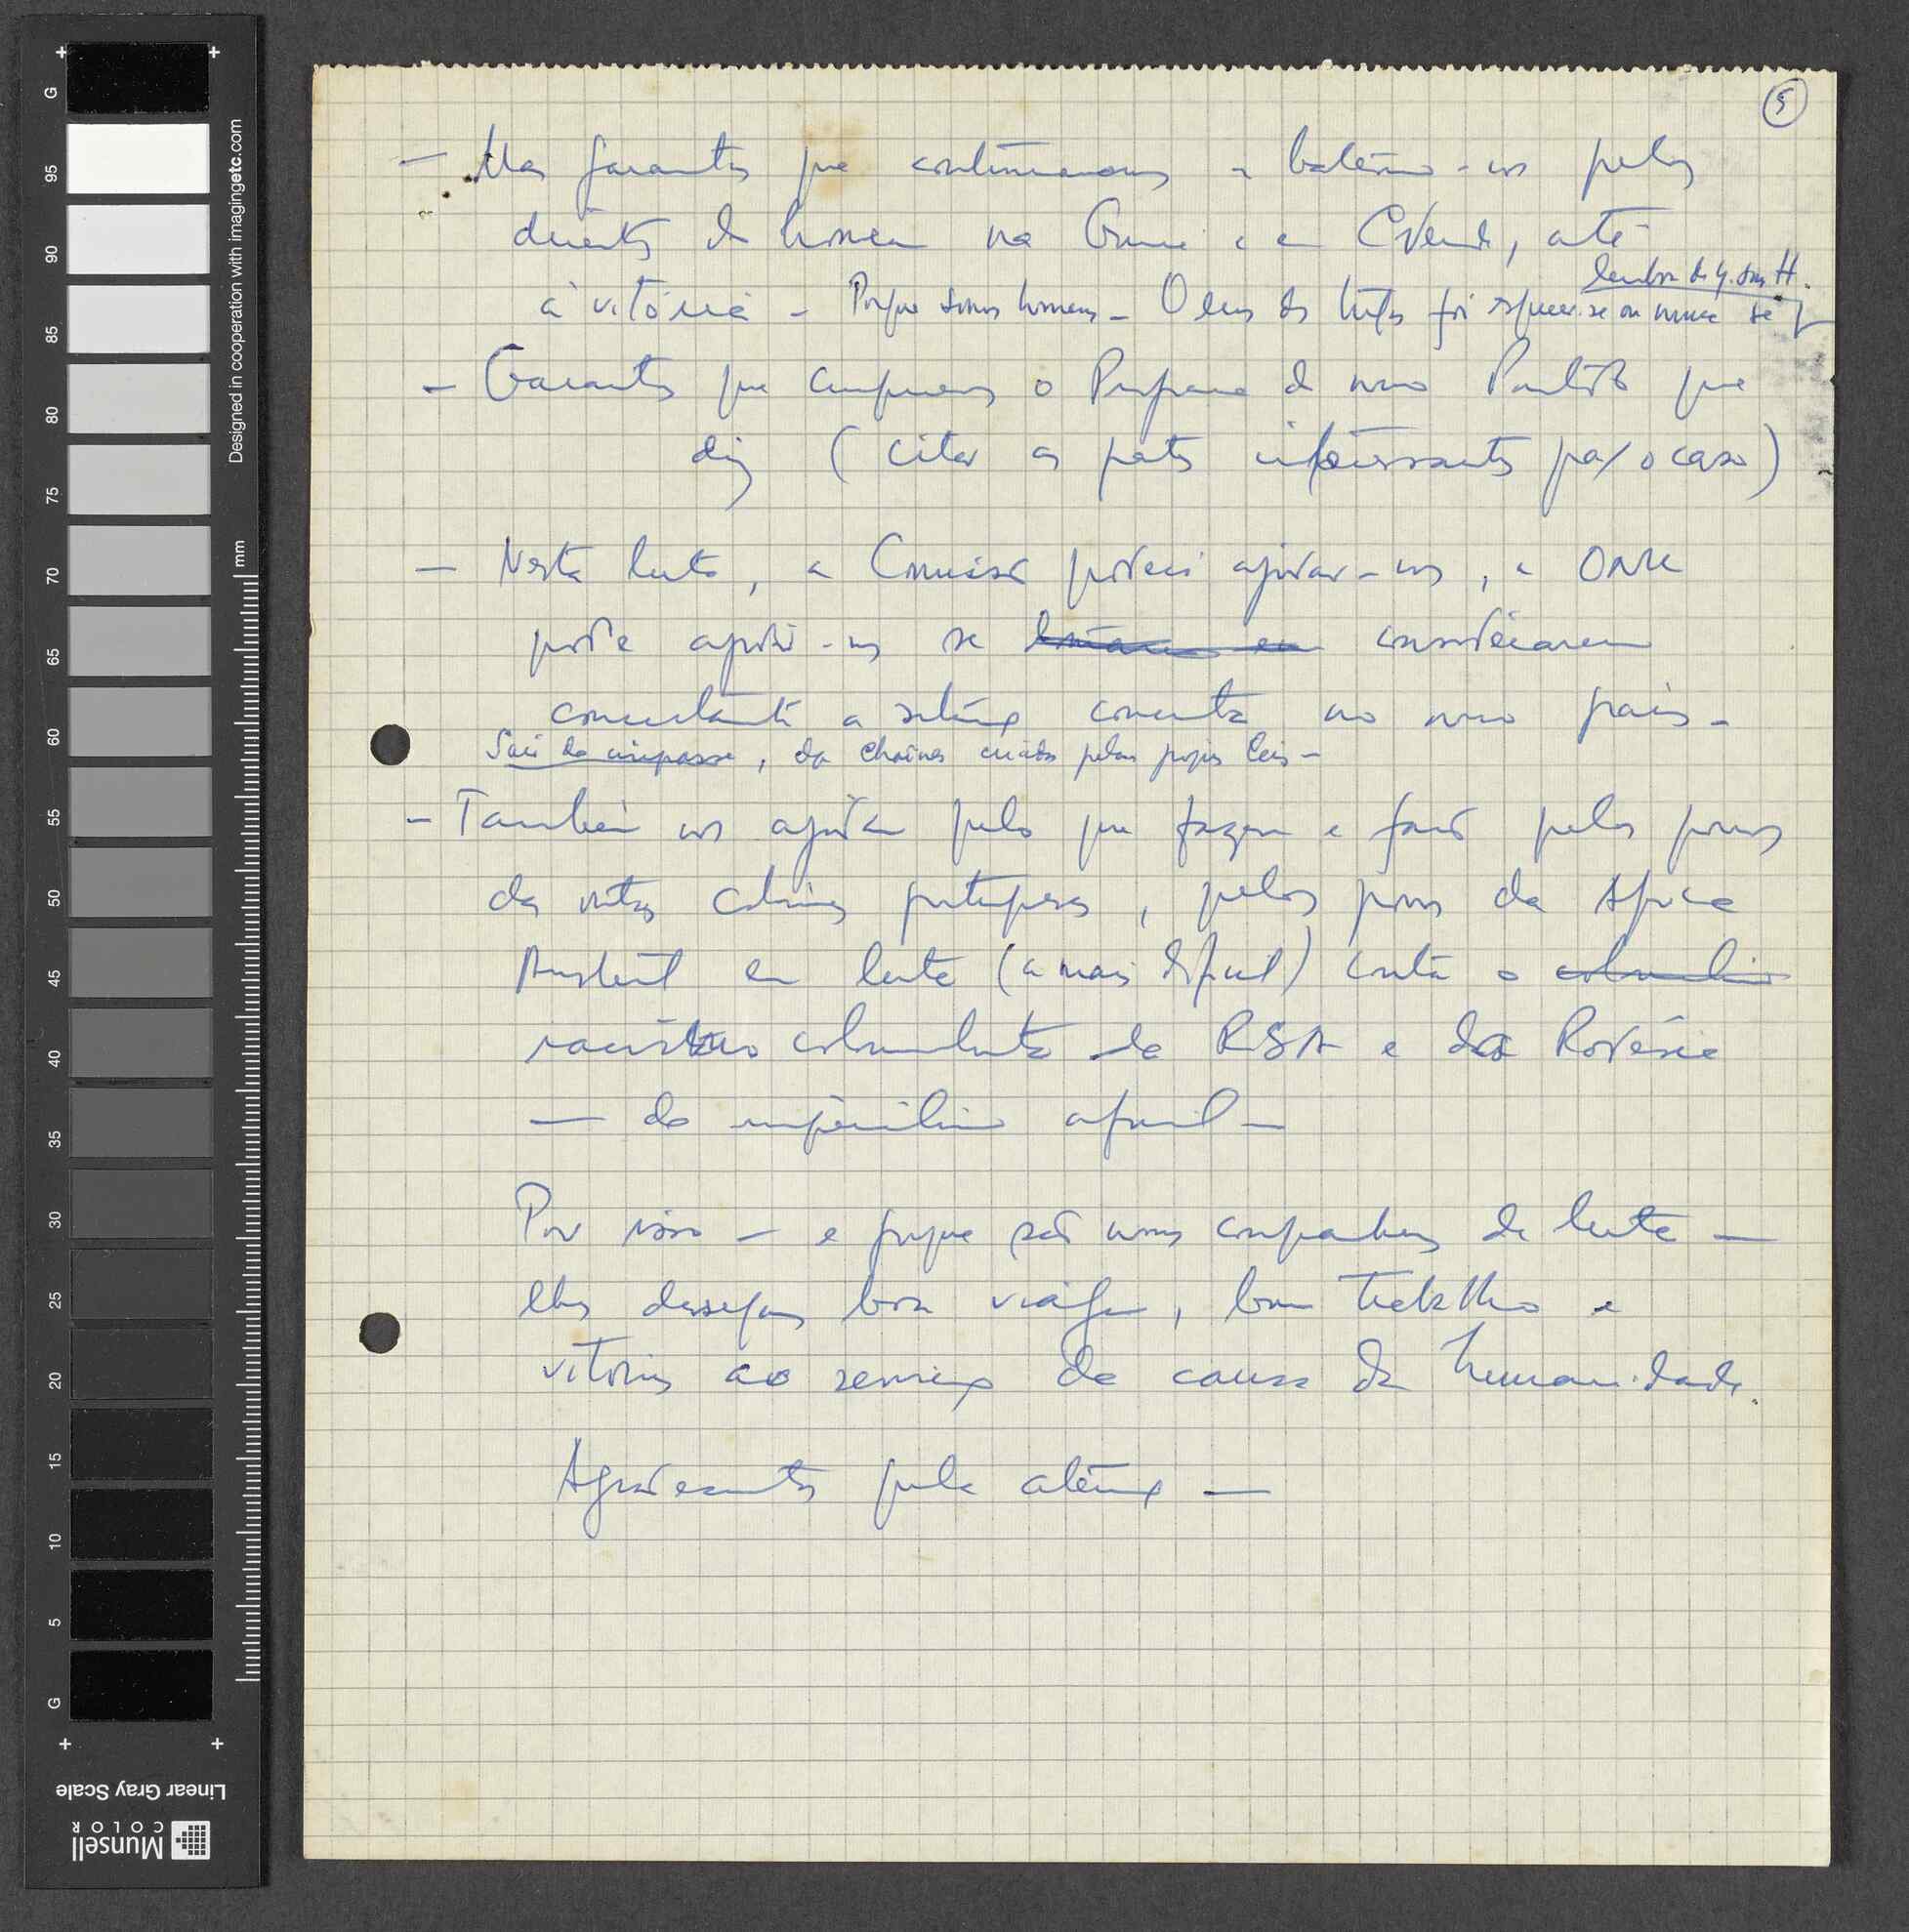 5
— Mas garantimos que continuaremos a bater-nos pelos
direitos do homem na Guiné e em C Verde, até
à vitória — Porque somos homens — O erro dos tugas foi esquecer-se ou nunca se
lembrar de q. somos H.
— Garantimos que cumpriremos o Programa do nosso Partido que
diz (citar as partes interessantes pa/ o caso)
— Nesta luta, a Comissão poderá ajudar-nos, a ONU
pode ajudar-nos se considerarem
concretamente a situação concreta no nosso país —
Sair do impasse, das chaînes criadas pelas próprias leis —
— Também nos ajudam pelo que fazem e farão pelos povos
das outras colónias portuguesas, pelos povos da Africa
Austral em luta (a mais difícil) contra o colonialismo
racismo colonialista da RSA e da Rodésia
— do imperialismo afinal —
Por isso — e porque são nossos companheiros de luta —
lhes desejamos boa viagem, bom trabalho e
vitórias ao serviço da causa da humanidade.
Agradecimentos pela atenção —
Designed in cooperation with imagingetc.com
mm
G 95 90 85 80 75 70 65 60 55 50 45 40 35 30 25 20 15 10 5 G
Linear Gray Scale
Munsell
COLOR